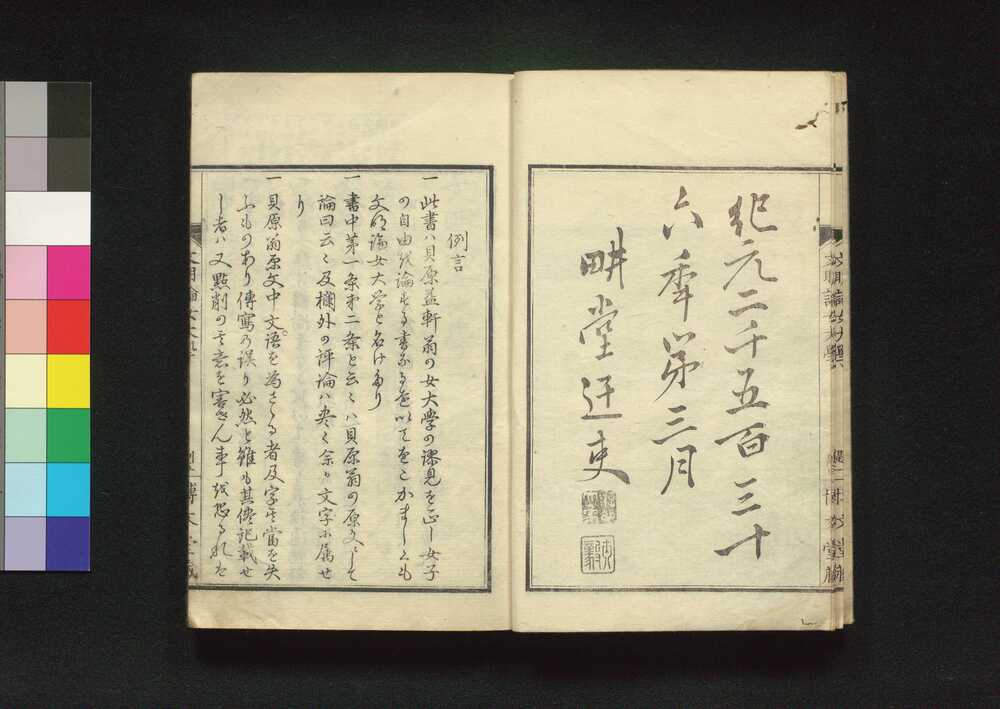 紀元二千五百三十
六年第三月
畊堂迂吏
例言
一 此書ハ貝原益軒翁の女大学の謬見を正し女子
の自由を論する書なるを以てをこかましくも
文明論女大学と名け多り
一 書中第一条第二条と云々ハ貝原翁の原文にして
論曰云々及欄外の評論ハ尽く余か文字に属せ
り
一 貝原翁原文中文語を為さゝる者及字其當を失
ふものあり傳寫の誤り必然と雖も其侭記載せ
し者ハ又點削の其意を害せん事を恐るれは
文明論女大學